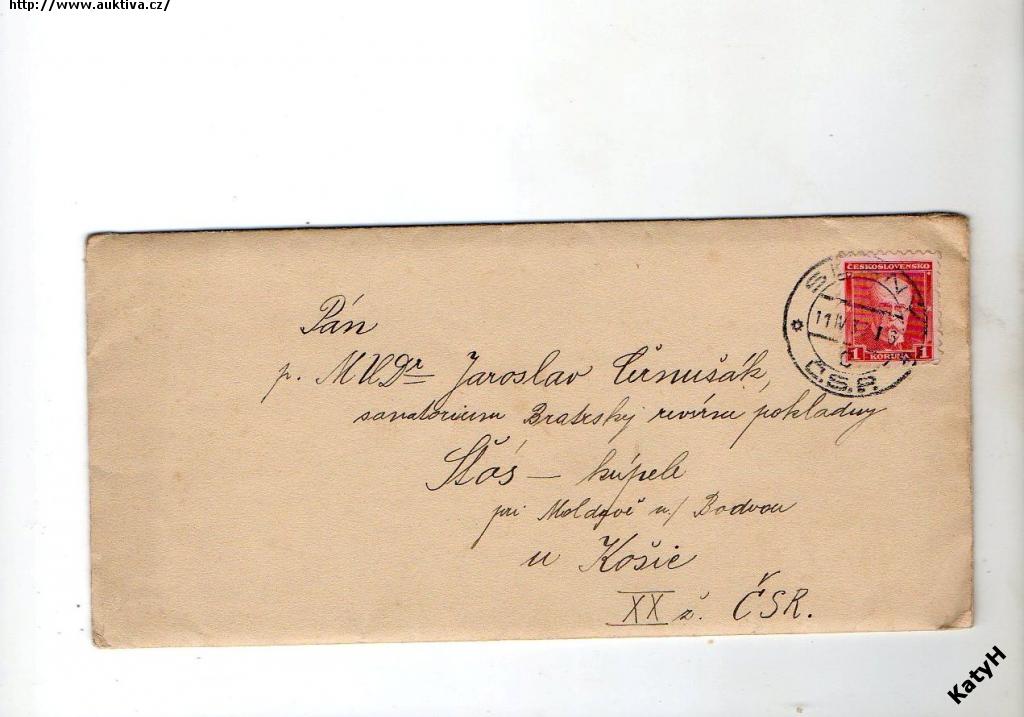 http://www.auktiva.cz/
ČESKOSLOVENSKO
1 KORUNA 1
Č.S.P.
Pán
p. MUDr Jaroslav Černušák,
sanatorium Bratrsky revírnu pokladny
Štós – kúpele
pri Moldavě n./ Bodvou
u Košic
XX ž. ČSR.
KatyH